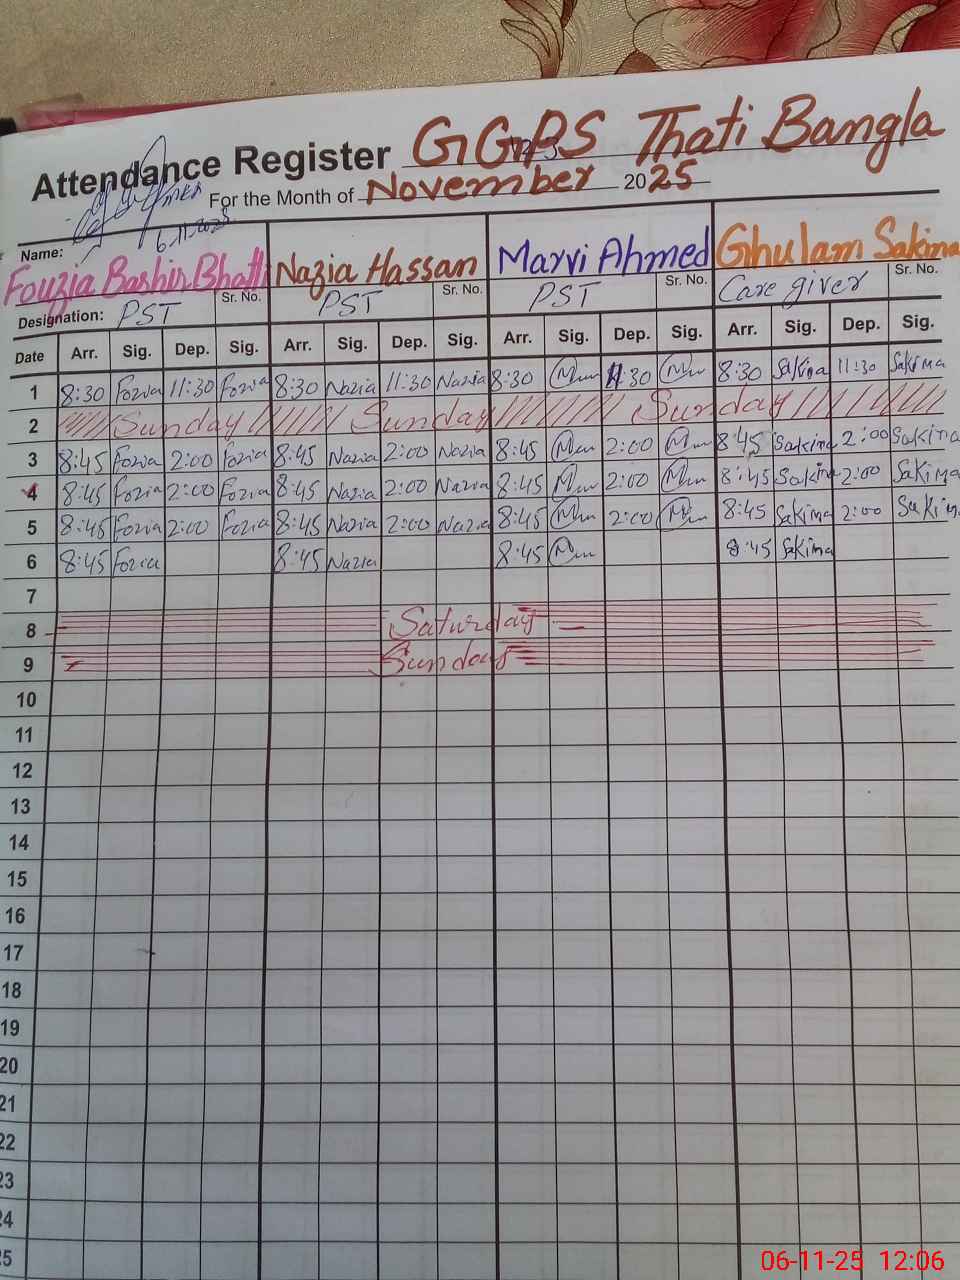 Attendance Register GGPS Thati Bangla
For the Month of November 2025
6-11-2025
Name:
Fouzia Bashir Bhatti Nazia Hassan Marvi Ahmed Ghulam Sakima
Sr. No. Sr. No. Sr. No. Sr. No.
Designation: PST PST PST Care giver
Date Arr. Sig. Dep. Sig. Arr. Sig. Dep. Sig. Arr. Sig. Dep. Sig. Arr. Sig. Dep. Sig.
1 8:30 Fozia 11:30 Fozia 8:30 Nazia 11:30 Nazia 8:30 11:30 8:30 Sakina 11:30 Sakima
2 Sunday Sunday Sunday
3 8:45 Fozia 2:00 Fozia 8:45 Nazia 2:00 Nazia 8:45 2:00 8:45 Sakina 2:00 Sakina
4 8:45 Fozia 2:00 Fozia 8:45 Nazia 2:00 Nazia 8:45 2:00 8:45 Sakina 2:00 Sakima
5 8:45 Fozia 2:00 Fozia 8:45 Nazia 2:00 Nazia 8:45 2:00 8:45 Sakima 2:00 Sakina
6 8:45 Fozia 8:45 Nazia 8:45 8:45 Sakima
7
8 Saturday
9 Sunday
10
11
12
13
14
15
16
17
18
19
20
21
22
23
24
5
06-11-25 12:06